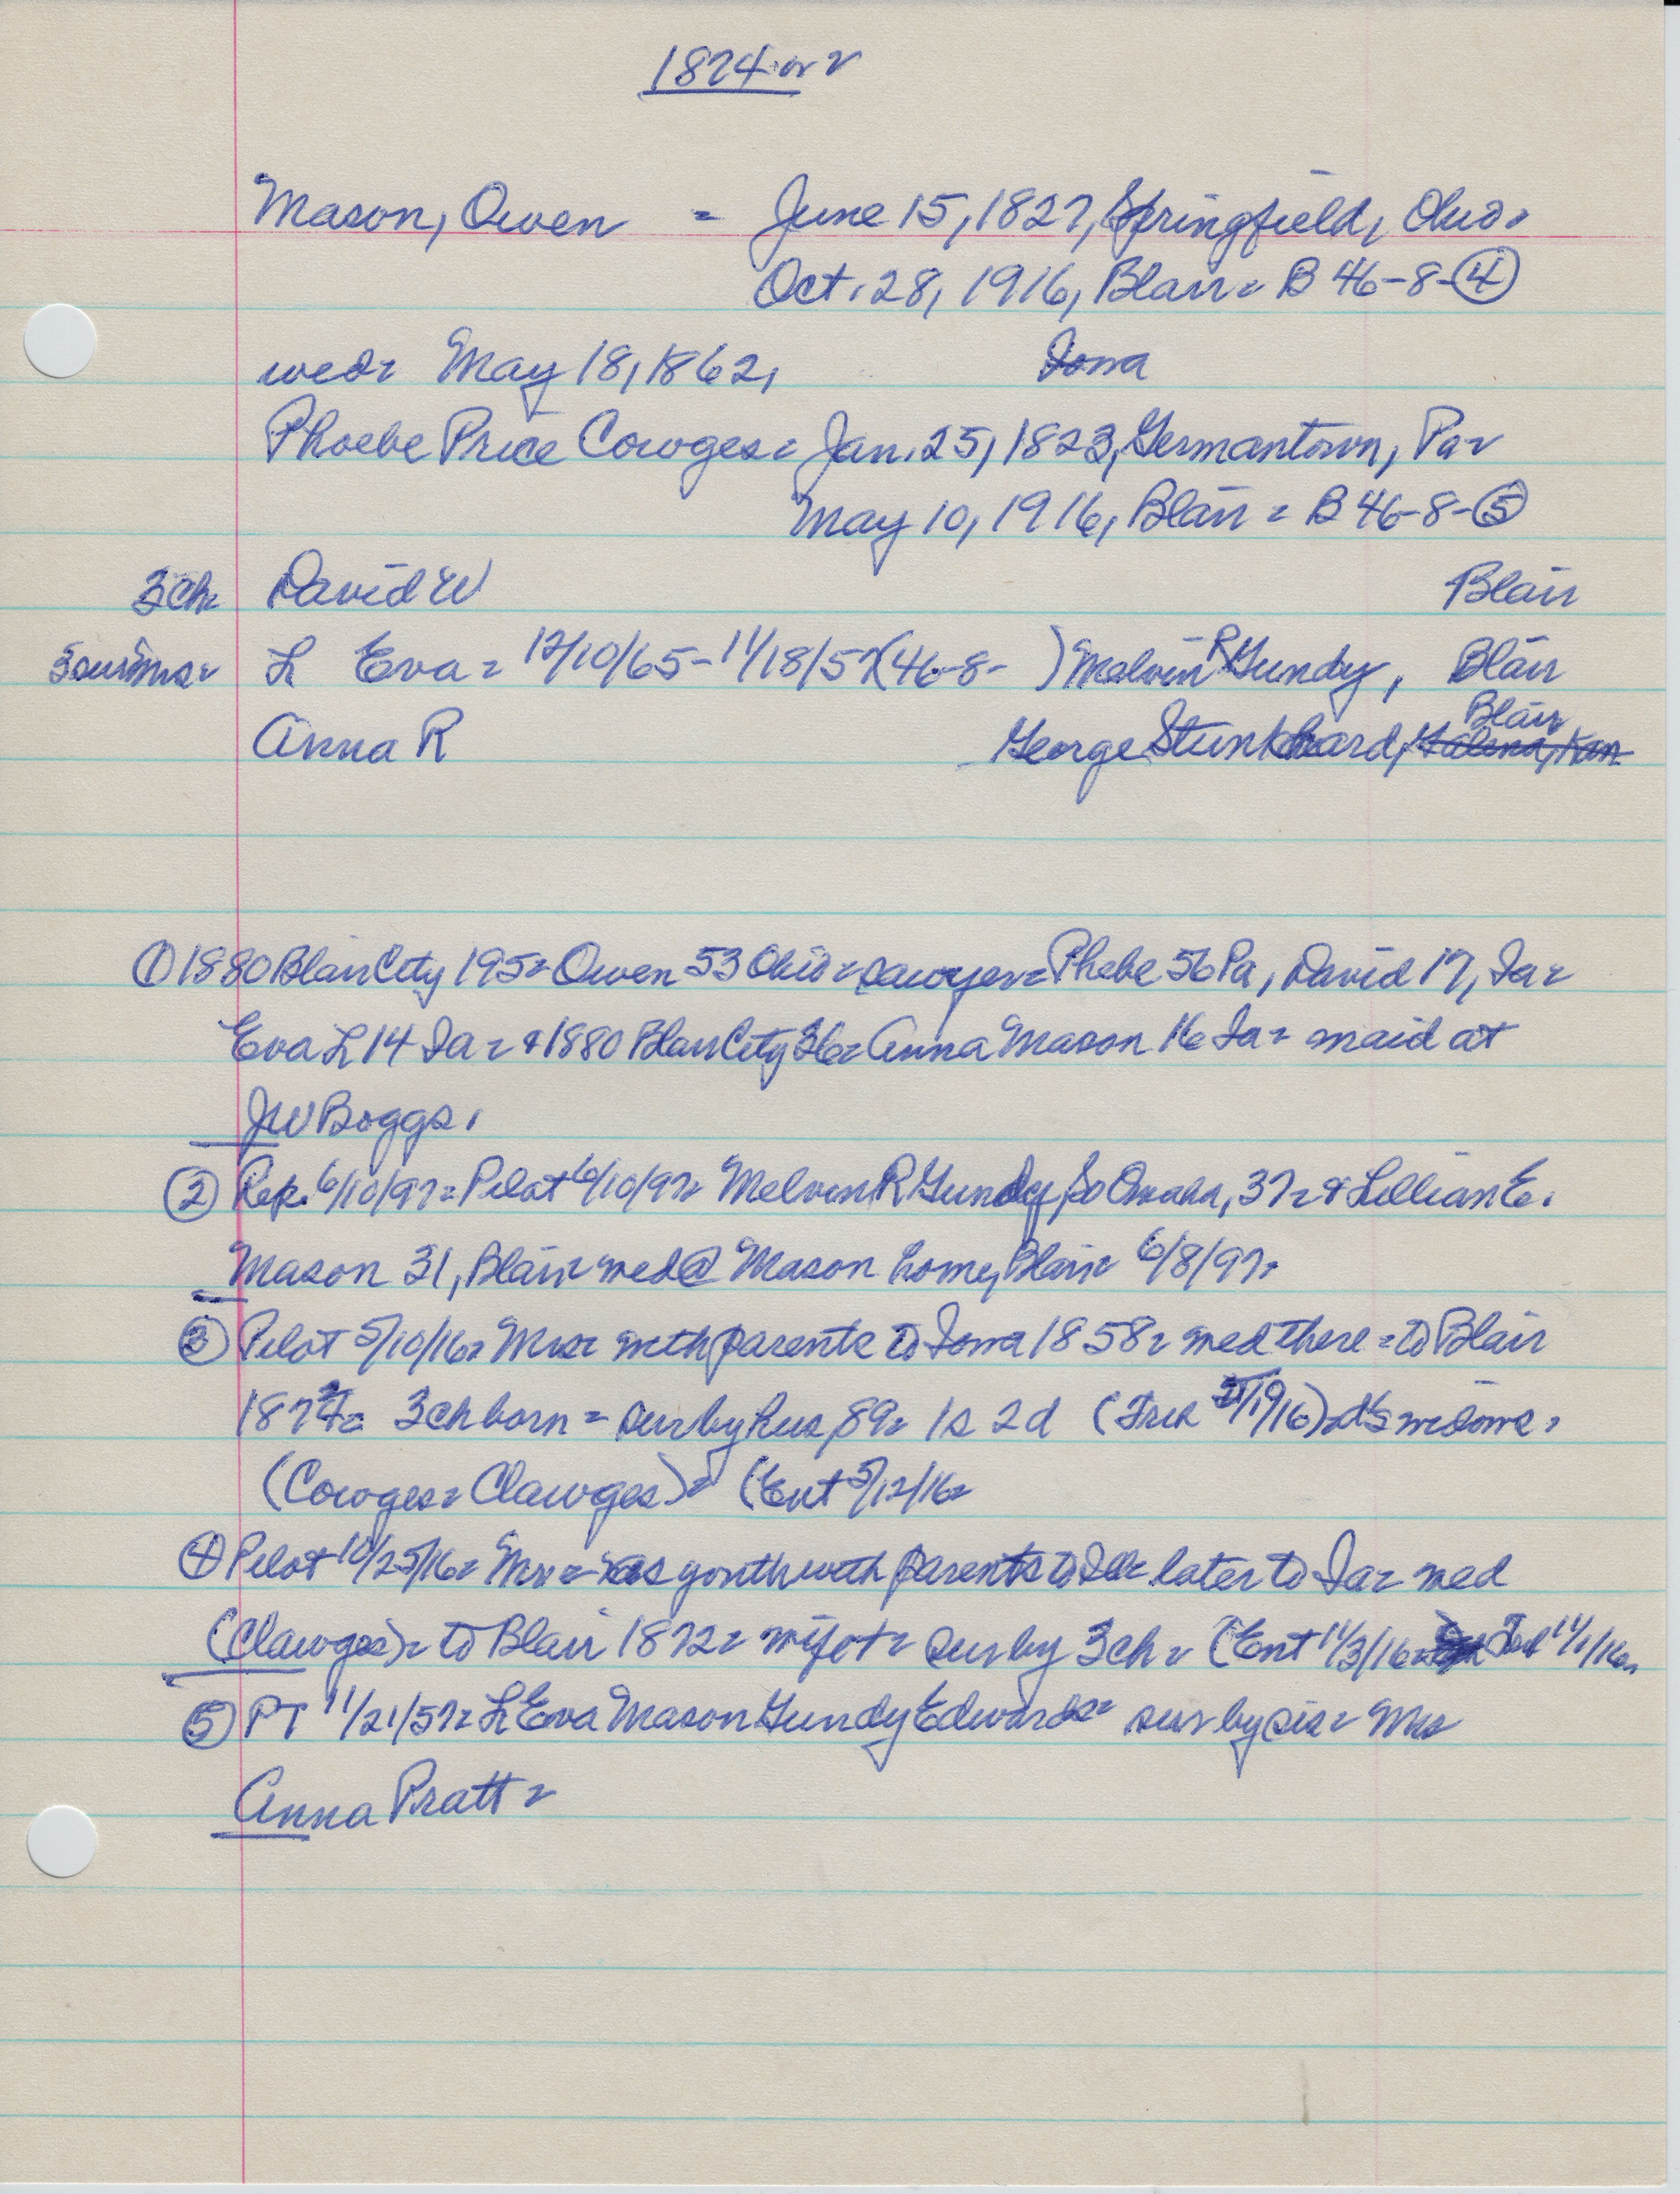 1874 or 2
Mason, Owen = June 15, 1827, Springfield, Ohio=
Oct. 28, 1916, Blair= B 46-8-④
wed= May 18, 1862, Iowa
Phoebe Price Cowges= Jan. 25, 1823, Germantown, Pa=
May 10, 1916, Blair= B 46-8-⑤
3ch= David W Blair
L Eva= 12/10/65-11/18/57(46-8- ) Melvin R Gundy, Blair
Blair
Anna R George Stunkhard, Galena, Kan
① 1880 Blair City 195= Owen 53 Ohio= sawyer= Phebe 56 Pa, David 17, Ia=
Eva L 14 Ia= & 1880 Blair City 36= Anna Mason 16 Ia= maid at
JW Boggs.
② Rep. 6/10/97= Pilot 6/10/97= Melvin R Gundy, So Omaha, 37= & Lillian E.
Mason 31, Blair= wed @ Mason home, Blair= 6/8/97=
③ Pilot 5/10/16= Mrs= with parents to Iowa 1858= wed there= to Blair
1872= 3 ch born= sur by hus, 89= 1s 2d
(Cowges= Clawges)= (Ent 5/12/16=
④ Pilot 10/25/16= Mr= as youth with parents to Ill= later to Ia= wed
(Clawges)= to Blair 1872= wife+= sur by 3 ch= (Ent 11/3/16= 11/1/16=
⑤ PT 11/21/57= L Eva Mason Gundy Edwards= sur by sis= Mrs
Anna Pratt=